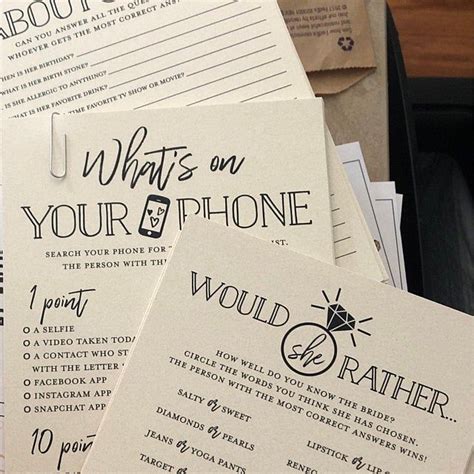 ABOUT
CAN YOU ANSWER ALL THE QUE
WHOEVER GETS THE MOST CORRECT ANSWERS
HEN IS HER BIRTHDAY?
WHAT IS HER BIRTH STONE?
IS SHE ALLERGIC TO ANYTHING?
WHAT IS HER FAVORITE DRINK?
TIME FAVORITE TV SHOW OR MOVIE?
What's on
YOUR PHONE
SEARCH YOUR PHONE FOR
IST.
THE PERSON WITH THE
1 point
A SELFIE
A VIDEO TAKEN TODAY
A CONTACT WHO ST
WITH THE LETTER
FACEBOOK APP
INSTAGRAM APP
SNAPCHAT APP
10 point
WOULD
she
RATHER...
HOW WELL DO YOU KNOW THE BRIDE?
CIRCLE THE WORDS YOU THINK SHE HAS CHOSEN.
THE PERSON WITH THE MOST CORRECT ANSWERS WINS!
SALTY or SWEET
DIAMONDS or PEARLS
JEANS or YOGA PANTS
TARGET or
LIPSTICK or LIP